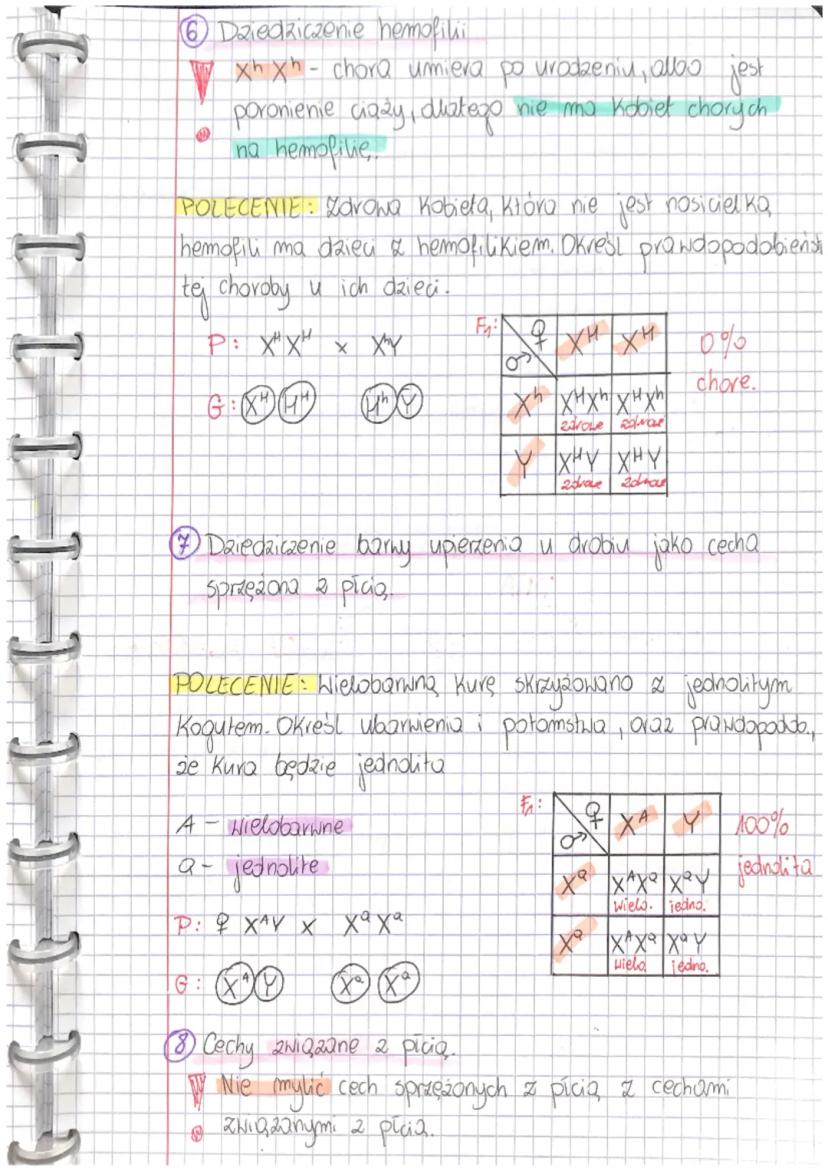 6 Dziedziczenie hemofilii
! XʰXʰ - chora umiera po urodzeniu, albo jest
poronienie ciąży, dlatego nie ma kobiet chorych
na hemofilię.
POLECENIE: Zdrowa kobieta, która nie jest nosicielką
hemofili ma dzieci z hemofilikiem. Określ prawdopodobieńst
tej choroby u ich dzieci.
P: XᴴXᴴ x XʰY
G: Xᴴ Hᴴ Hʰ Y
F₁: ♀ ♂ Xᴴ Xᴴ
Xʰ XᴴXʰ XᴴXʰ
zdrowe zdrowe
Y XᴴY XᴴY
zdrowe zdrowe
0%
chore.
7 Dziedziczenie barwy upierzenia u drobiu jako cecha
sprzężona z płcią.
POLECENIE: Wielobarwną kurę skrzyżowano z jednolitym
kogutem. Określ ubarwienia i potomstwa, oraz prawdopodob.,
że kura będzie jednolita
A - wielobarwne
a - jednolite
P: ♀ XᴬY x XᵃXᵃ
G: Xᴬ Y Xᵃ Xᵃ
F₁: ♀ ♂ Xᴬ Y
Xᵃ XᴬXᵃ XᵃY
wielo. jedno.
Xᵃ XᴬXᵃ XᵃY
wielo. jedno.
100%
jednolita
8 Cechy związane z płcią.
! Nie mylić cech sprzężonych z płcią z cechami
związanymi z płcią.